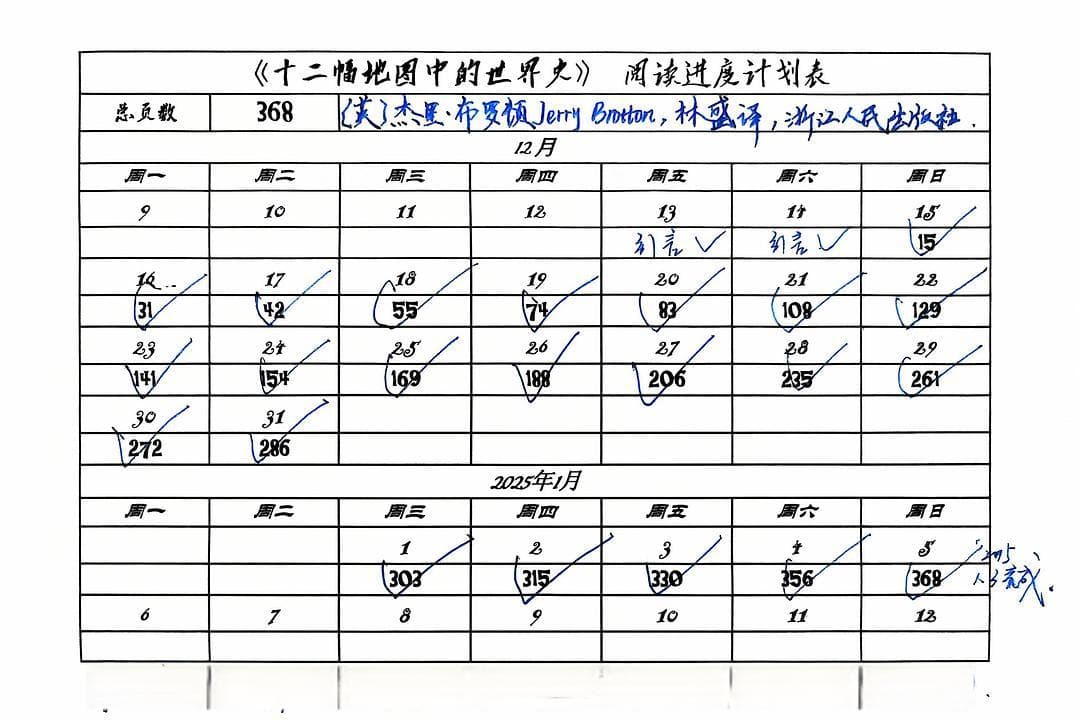 《十二幅地图中的世界史》 阅读进度计划表
总页数 368 (英)杰里·布罗顿 Jerry Brotton, 林盛译, 浙江人民出版社.
12月
周一 周二 周三 周四 周五 周六 周日
9 10 11 12 13 14 15
引言 ✓ 引言 ✓ 15
16 17 18 19 20 21 22
31 42 55 74 83 108 129
23 24 25 26 27 28 29
141 154 169 188 206 235 261
30 31
272 286
2025年1月
周一 周二 周三 周四 周五 周六 周日
1 2 3 4 5
303 315 330 356 368
完成.
6 7 8 9 10 11 12